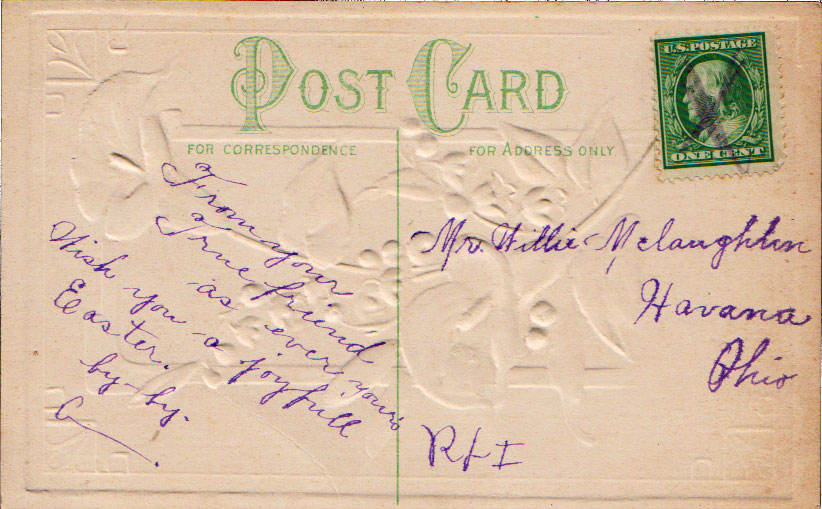 POST CARD
U.S. POSTAGE
ONE CENT
FOR CORRESPONDENCE
FOR ADDRESS ONLY.
From your
True friend
as ever yours
Wish you a joyfull
Easter.
by-by.
Mr. Willie Mclaughlin
Havana
Ohio